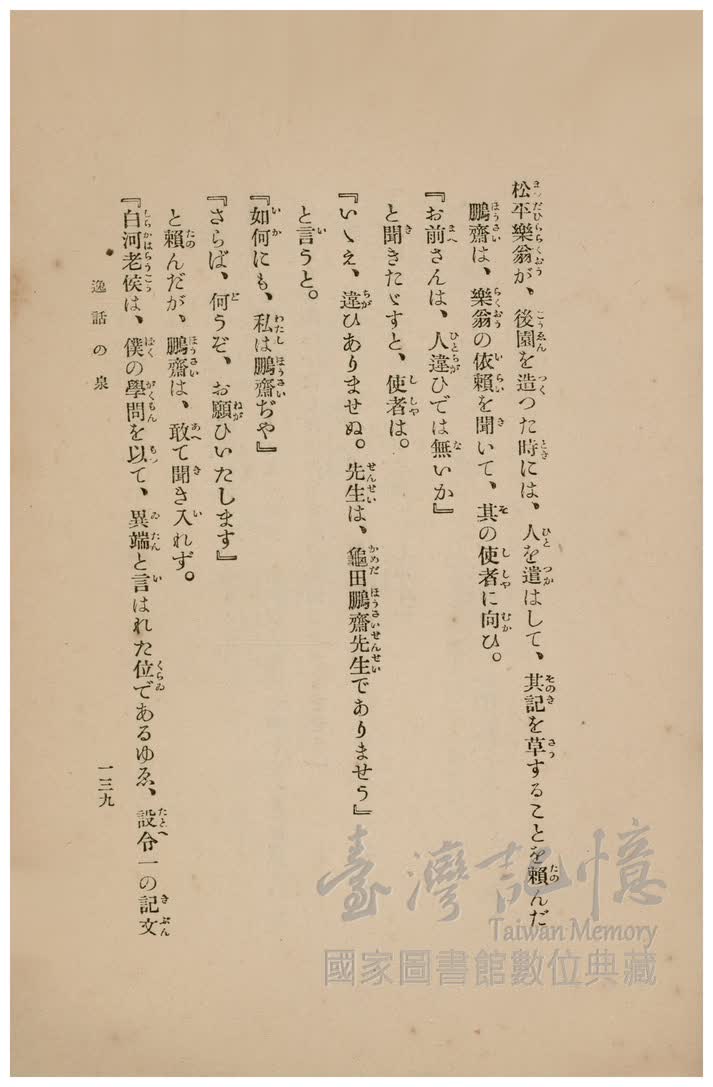 松平樂翁が、後園を造つた時には、人を遣はして、其記を草することを賴んだ
鵬齋は、樂翁の依賴を聞いて、其の使者に向ひ。
『お前さんは、人違ひでは無いか』
と聞きたゞすと、使者は。
『いゝえ、違ひありませぬ。先生は、龜田鵬齋先生でありませう』
と言うと。
『如何にも、私は鵬齋ぢや』
『さらば、何うぞ、お願ひいたします』
と賴んだが、鵬齋は、敢て聞き入れず。
『白河老侯は、僕の學問を以て、異端と言はれた位であるゆゑ、設令一の記文
逸話の泉
一三九
臺灣記憶
Taiwan Memory
國家圖書館數位典藏